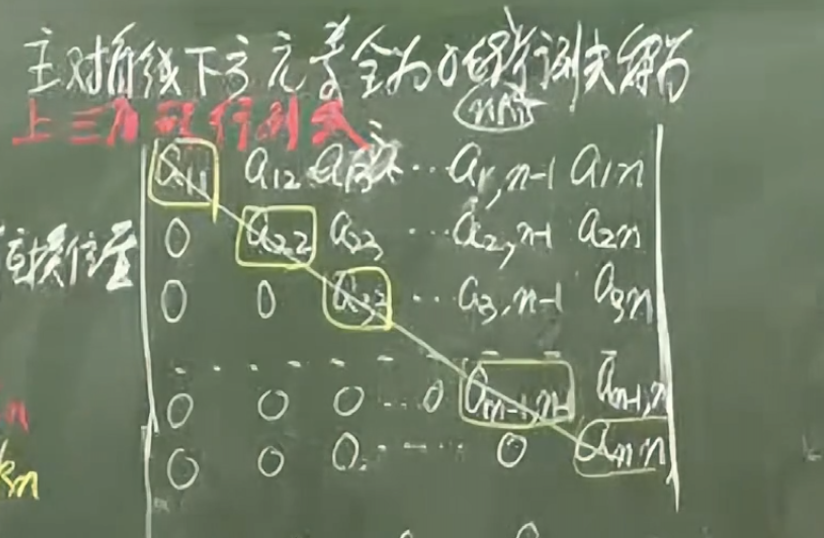 主对角线下方元素全为0的行列式称为
上三角形行列式
a11 a12 a13 ··· a1,n-1 a1n
0 a22 a23 ··· a2,n-1 a2n
互换位置
0 0 a33 ··· a3,n-1 a3n
0 0 0 ··· 0 an-1,n-1 an-1,n
n
0 0 0 ··· 0 ann
3n